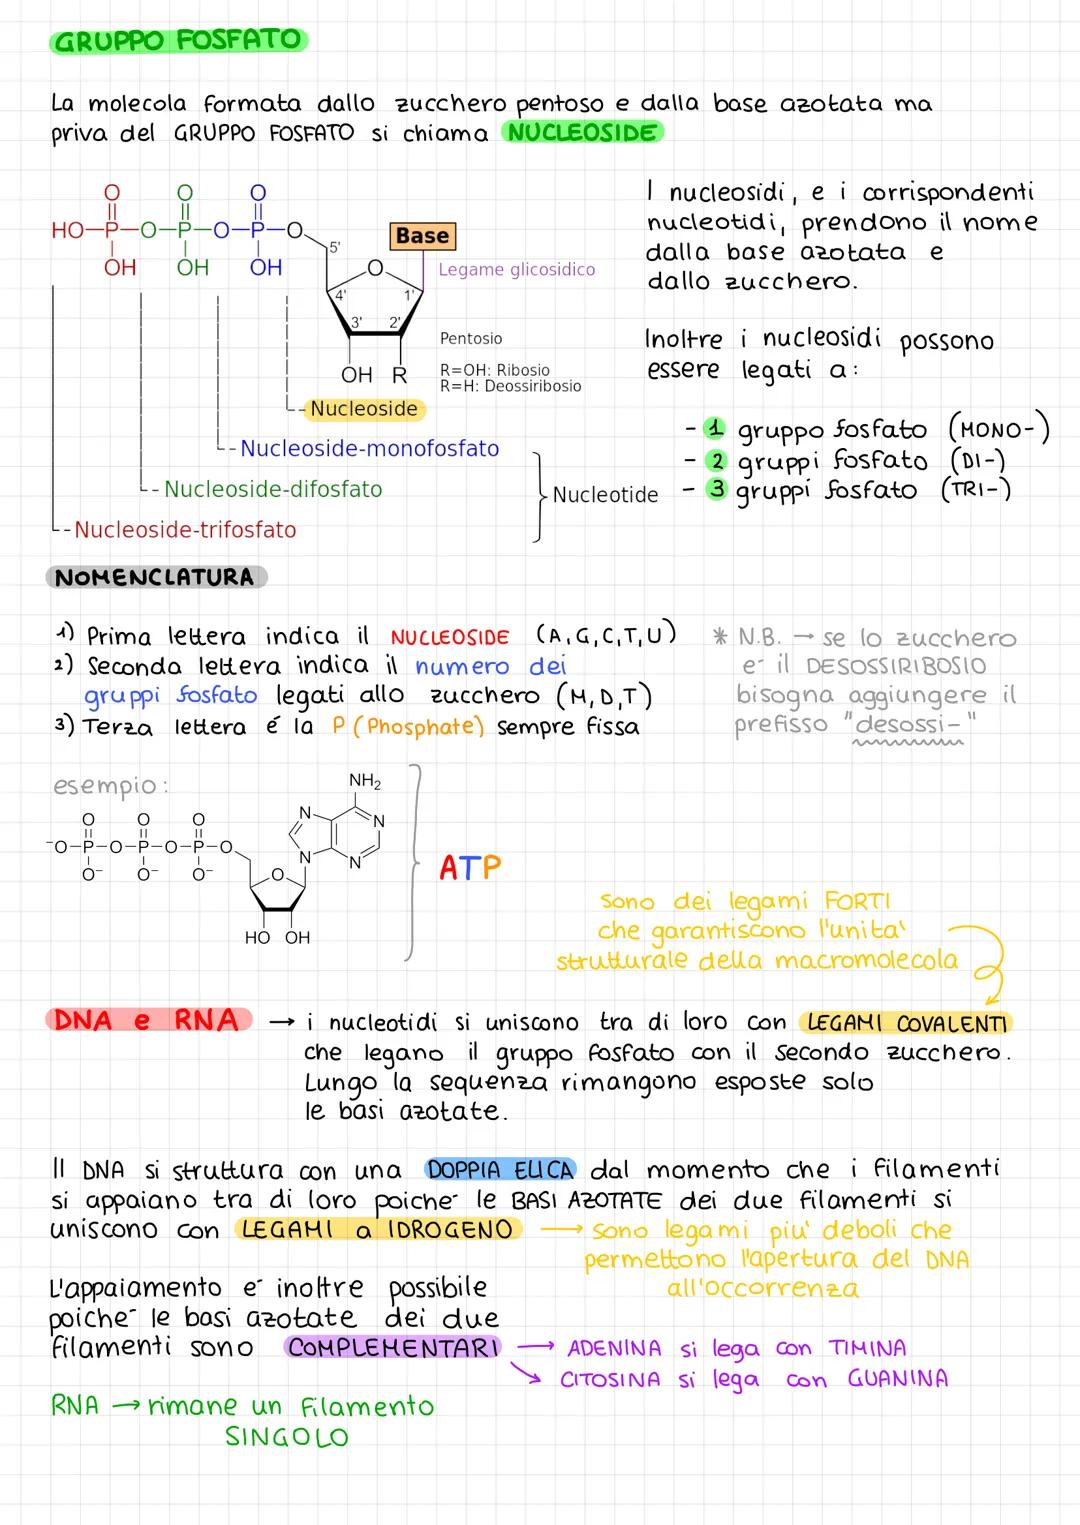 GRUPPO FOSFATO
La molecola formata dallo zucchero pentoso e dalla base azotata ma
priva del GRUPPO FOSFATO si chiama NUCLEOSIDE
O O O
HO-P-O-P-O-P-O
OH OH OH
5'
Base
O
Legame glicosidico
4' 1'
3' 2'
Pentosio
OH R
R=OH: Ribosio
R=H: Deossiribosio
Nucleoside
Nucleoside-monofosfato
Nucleoside-difosfato
Nucleotide
Nucleoside-trifosfato
I nucleosidi, e i corrispondenti
nucleotidi, prendono il nome
dalla base azotata e
dallo zucchero.
Inoltre i nucleosidi possono
essere legati a:
- 1 gruppo fosfato (MONO-)
- 2 gruppi fosfato (DI-)
- 3 gruppi fosfato (TRI-)
NOMENCLATURA
1) Prima lettera indica il NUCLEOSIDE (A,G,C,T,U)
2) Seconda lettera indica il numero dei
gruppi fosfato legati allo zucchero (M,D,T)
3) Terza lettera é la P (Phosphate) sempre fissa
* N.B. → se lo zucchero
e' il DESOSSIRIBOSIO
bisogna aggiungere il
prefisso "desossi-"
esempio:
NH₂
N N
N N
O O O
⁻O-P-O-P-O-P-O
O⁻ O⁻ O⁻
O
HO OH
ATP
sono dei legami FORTI
che garantiscono l'unita'
strutturale della macromolecola
DNA e RNA → i nucleotidi si uniscono tra di loro con LEGAMI COVALENTI
che legano il gruppo fosfato con il secondo zucchero.
Lungo la sequenza rimangono esposte solo
le basi azotate.
Il DNA si struttura con una DOPPIA ELICA dal momento che i filamenti
si appaiano tra di loro poiche' le BASI AZOTATE dei due filamenti si
uniscono con LEGAMI a IDROGENO → sono legami piu' deboli che
permettono l'apertura del DNA
all'occorrenza
L'appaiamento e' inoltre possibile
poiche' le basi azotate dei due
filamenti sono COMPLEMENTARI → ADENINA si lega con TIMINA
↘ CITOSINA si lega con GUANINA
RNA → rimane un filamento
SINGOLO